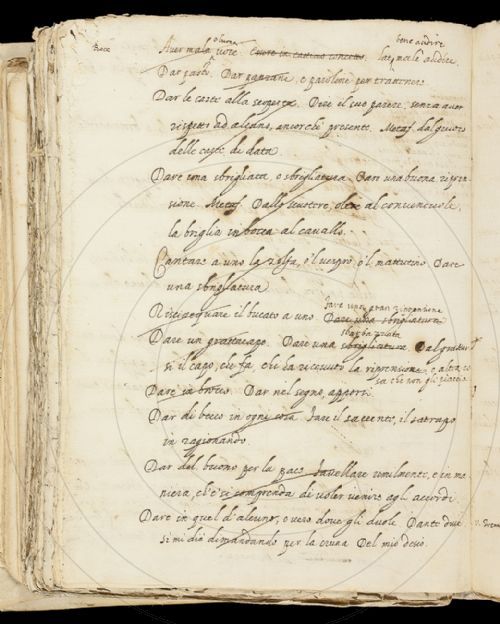 Aver mala voce. Essere in cattivo concetto
Dar parole. Dar panzane, e parolone per trattenere
Dar le carte alla scoperta. Dire il suo parere, senza aver
rispetto ad alcuno, ancorchè presente. Metaf. dal giuoco
delle carte di data
Dare una sbrigliata, o sbrigliatura. Dare una buona ripren
sione. Metaf. Dallo scuotere, oltre al convenevole,
la briglia in bocca al cavallo.
Cantare a uno la zolfa, o'l vespro, o'l mattutino. Dare
una sbrigliatura
fare una gran riprensione
Risciacquare il bucato a uno. Dare una sbrigliatura
sbarbazzata
Dare un grattacapo. Dare una sbrigliatura. Dal grattar
si il capo, che fa, chi ha ricevuto la riprensione, o altra co
sa che non gli piaccia
Dare in brocco. Dar nel segno, apporsi.
Dar di becco in ogni cosa. Fare il saccente, il satrapo
in ragionando.
Dar del buono per la pace. Favellare umilmente, e in ma
niera, ch'e' si comprenda di voler venire agl'accordi.
Dare in quel d'alcuno, e vero dove gli duole. Dante dice
Si mi diè dimandando per la cruna Del mio desio.